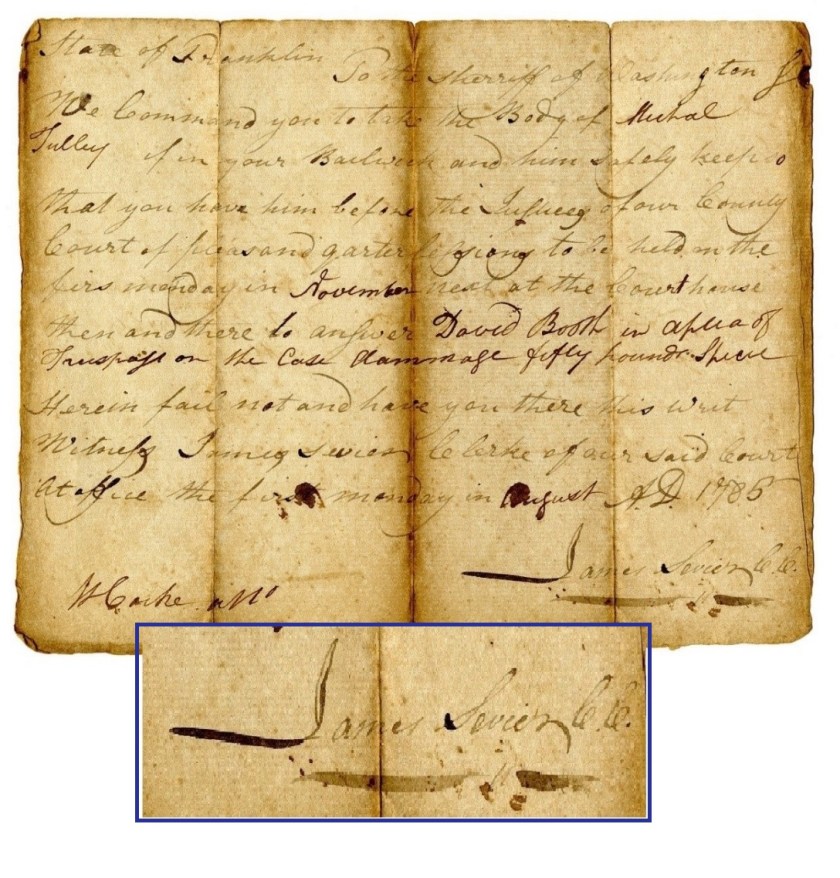 State of Franklin
To the sherriff of Washington
We Command you to take the Body of Michal
Tulley if in your Bailweek and him safely keep so
that you have him before the Justices of our County
Court of pleas and quarter sessions to be held on the
firs monday in November next at the Courthouse
then and there to answer David Booth in a plea of
Trespass on the Case dammage fifty pounds Specie
Herein fail not and have you there this writ
Witness James Sevier Clerke of our said Court
At office the first monday in August A.D. 1785
James Sevier C.C.
W Cocke
James Sevier C.C.